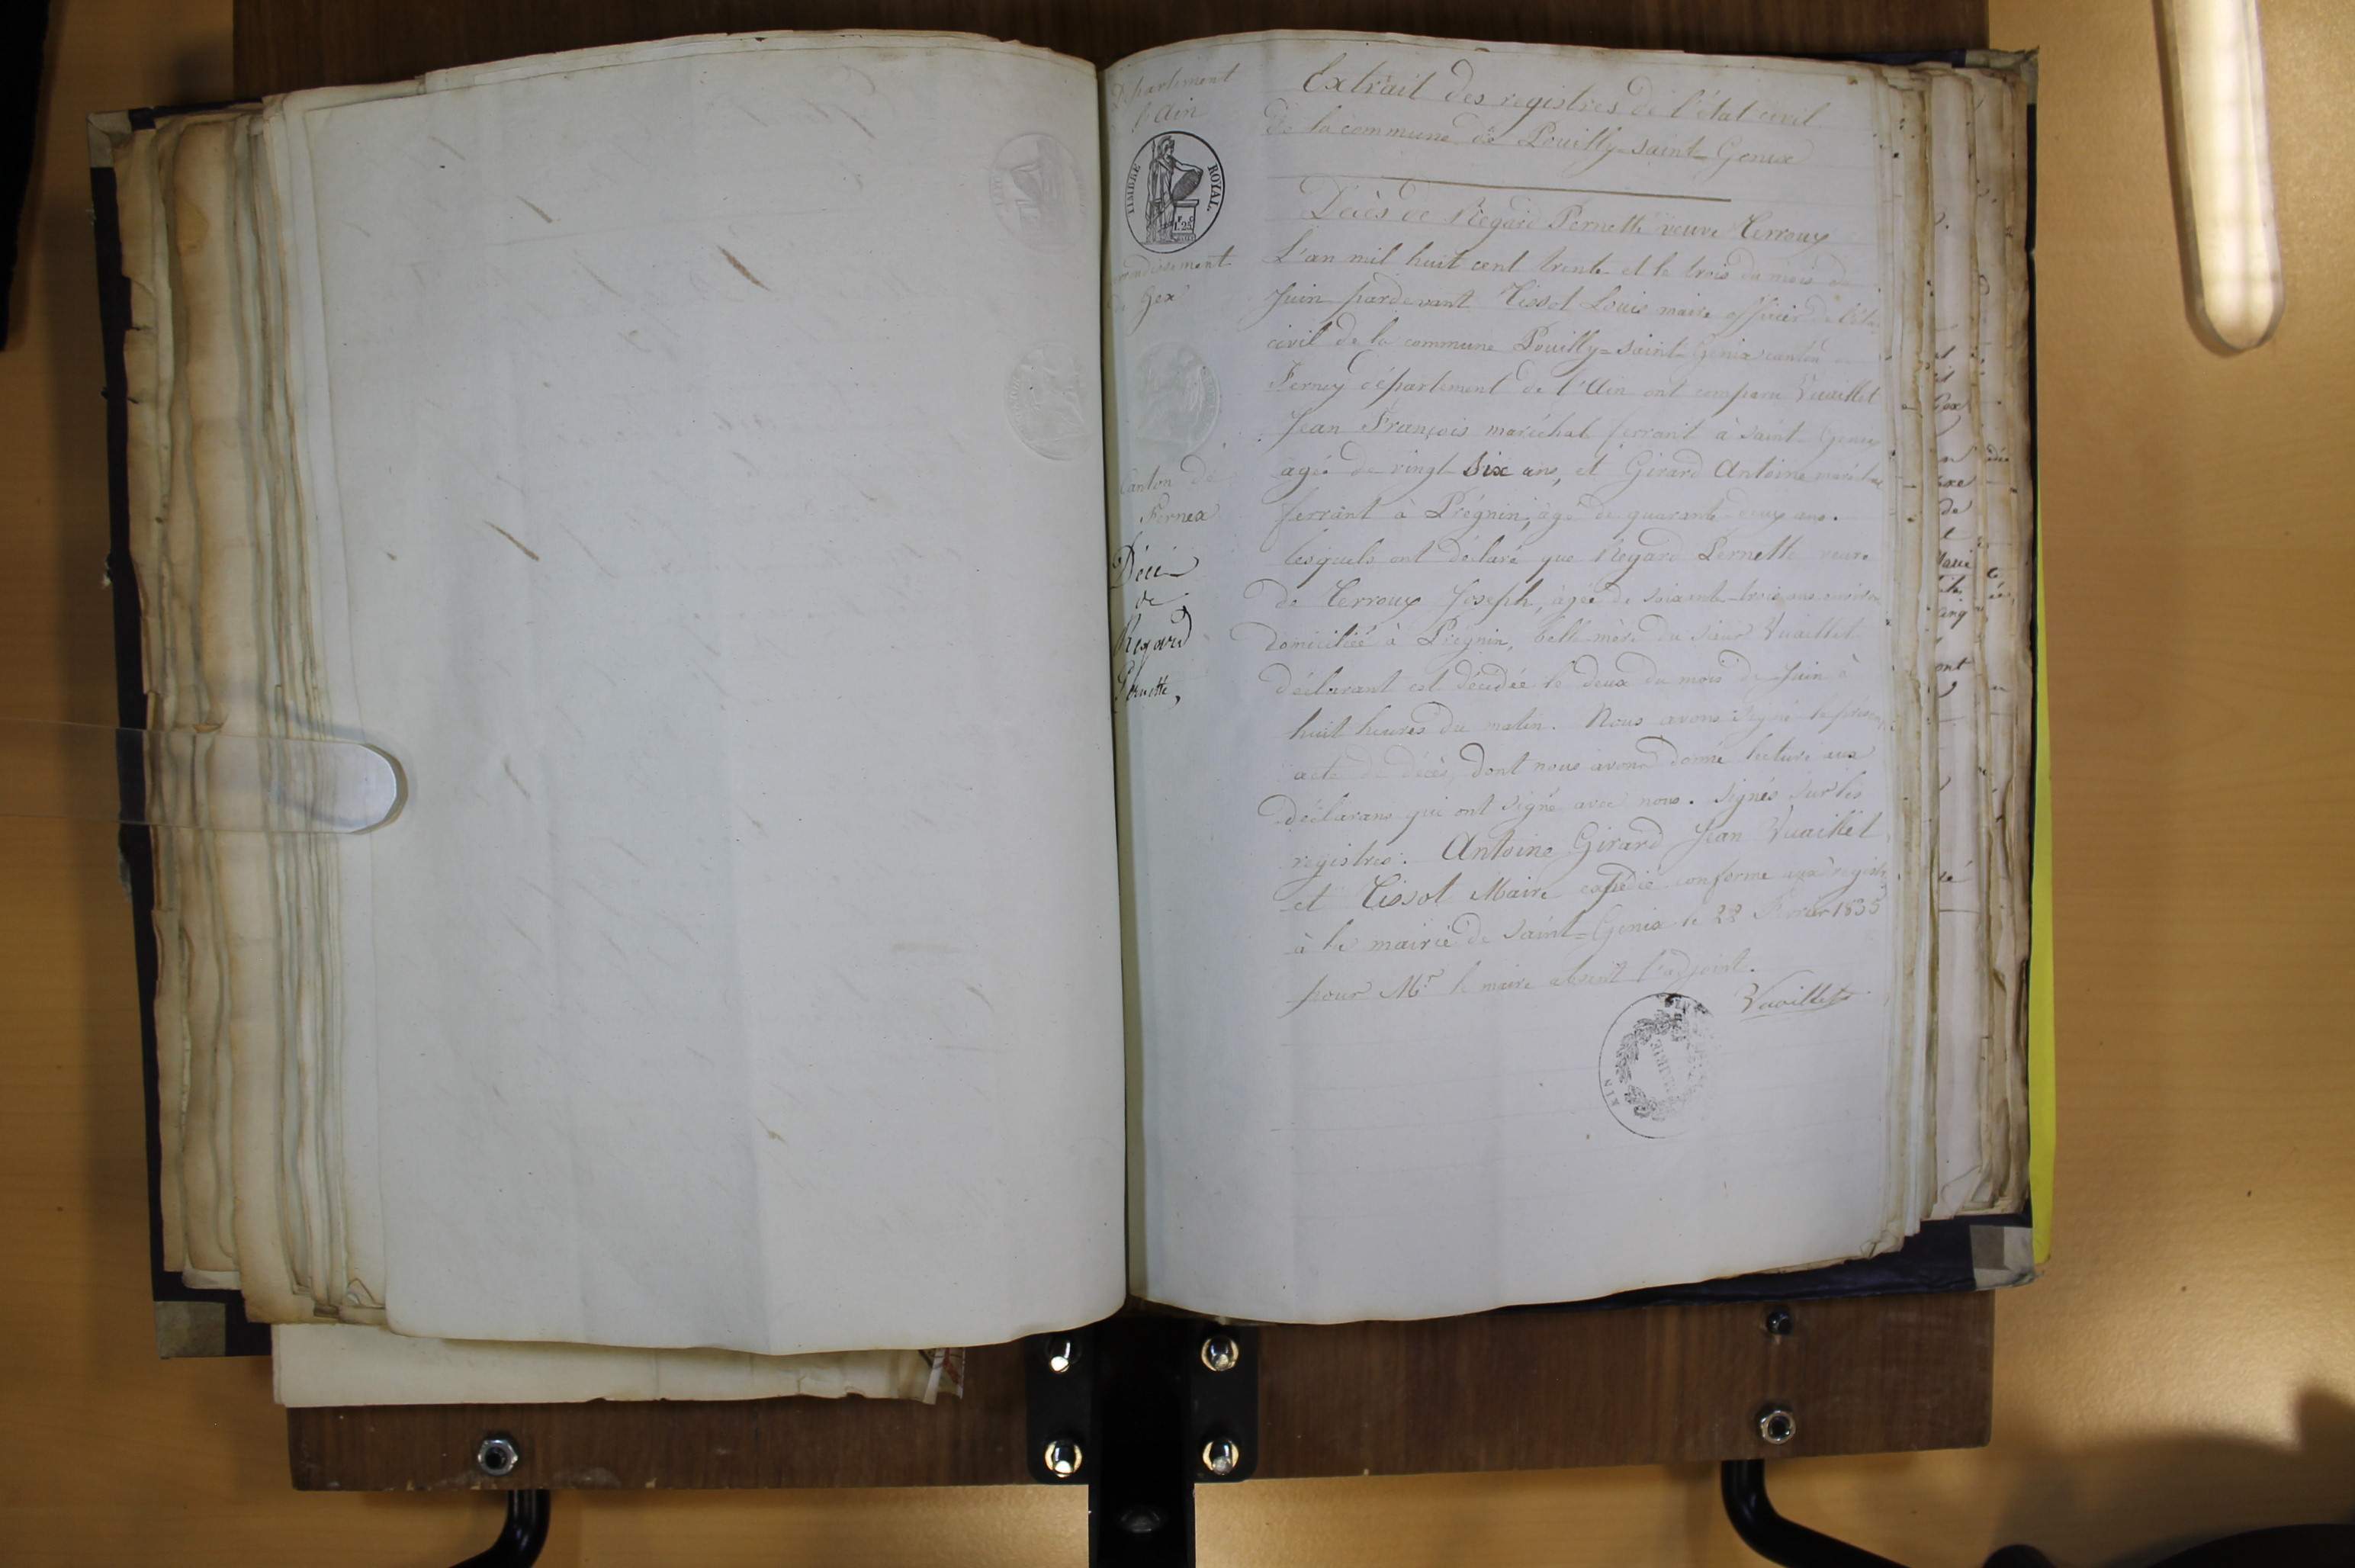 Département
l'Ain
TIMBRE ROYAL
1.25
arrondissement
de Gex
Canton de
Fernex
Décè
de
Regard
Pernette,
Extrait des registres de l'état civil
de la commune de Pouilly-saint-Genix
Décès de Regard Pernette veuve Terroux
L'an mil huit cent trente et le trois du mois de
Juin pardevant Tissot Louis maire officier de l'éta
civil de la commune Pouilly=saint-Genix canton
Ferney département de l'Ain ont comparu Vuaillet
Jean François maréchal ferrant à saint-Genix
agé de vingt Six ans, et Girard Antoine maréchal
ferrant à Prégnin, âgé de quarante deux ans.
lesquels ont déclaré que Regard Pernette veuve
de Terroux Joseph, âgée de soixante-trois ans environ
domiciliée à Prégnin, belle-mère du sieur Vuaillet
déclarant est décédée le deux du mois de Juin à
huit heures du matin. Nous avons signé le présent
acte de décès, dont nous avons donné lecture aux
déclarans qui ont signé avec nous. Signés sur les
registres: Antoine Girard Jean Vuaillet
et Tissot Maire expédié conforme aux registres
à la mairie de saint=Genix le 28 Février 1835
pour Mr le maire absent l'adjoint.
Vuaillet
MAIRIE
AIN